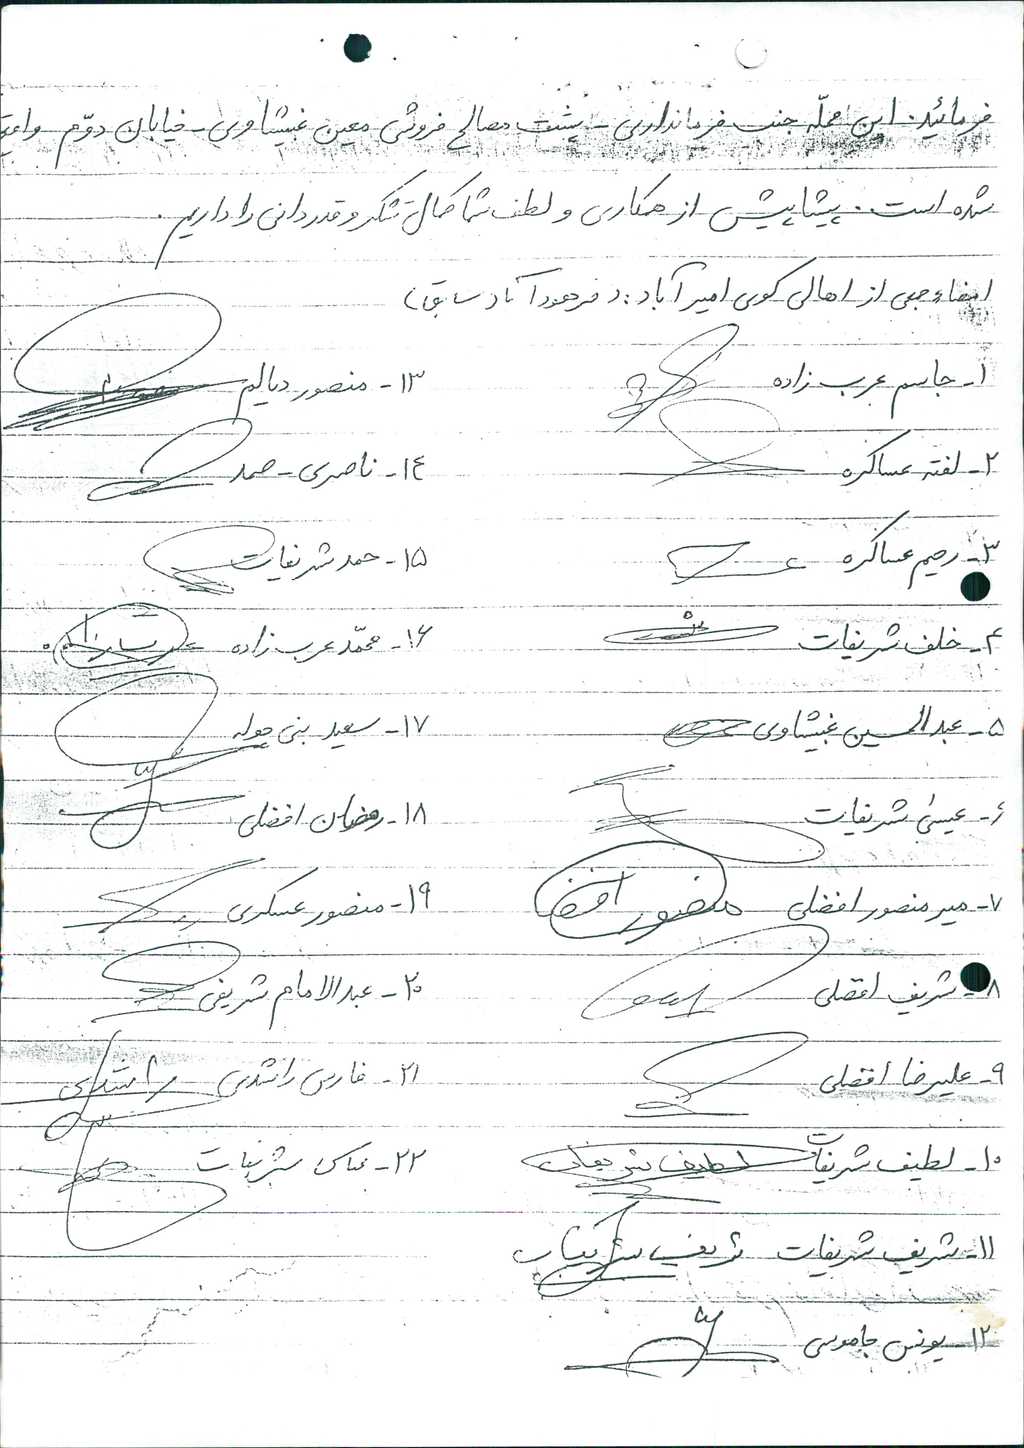 فرمائید. این محلّه جنب فرمانداری - پشت مصالح فروشی معین غبیشاوی - خیابان دوّم واقع
شده است. پیشاپیش از همکاری و لطف شما کمال تشکر و قدردانی را داریم.
امضاء جمعی از اهالی کوی امیرآباد: (فرهودآباد سابق)
۱- جاسم عرب زاده
۲- لفته عساکره
۳- رحیم عساکره
۴- خلف شریفات
۵- عبدالحسین غبیشاوی
۶- عیسیٰ شریفات
۷- میر منصور افضلی
منصور
۸- شریف افضلی
۹- علیرضا افضلی
۱۰- لطیف شریفات
لطیف شریفات
۱۱- شریف شریفات
شریف شریفات
۱۲- یونس جاموسی
۱۳- منصور دیالم
۱۴- ناصری - صمد
۱۵- حمد شریفات
۱۶- محمّد عرب زاده
۱۷- سعید بنی
۱۸- رمضان افضلی
۱۹- منصور عسکری
۲۰- عبدالامام شریفی
۲۱- فارس راشدی
راشدی
۲۲- عباس شریفات